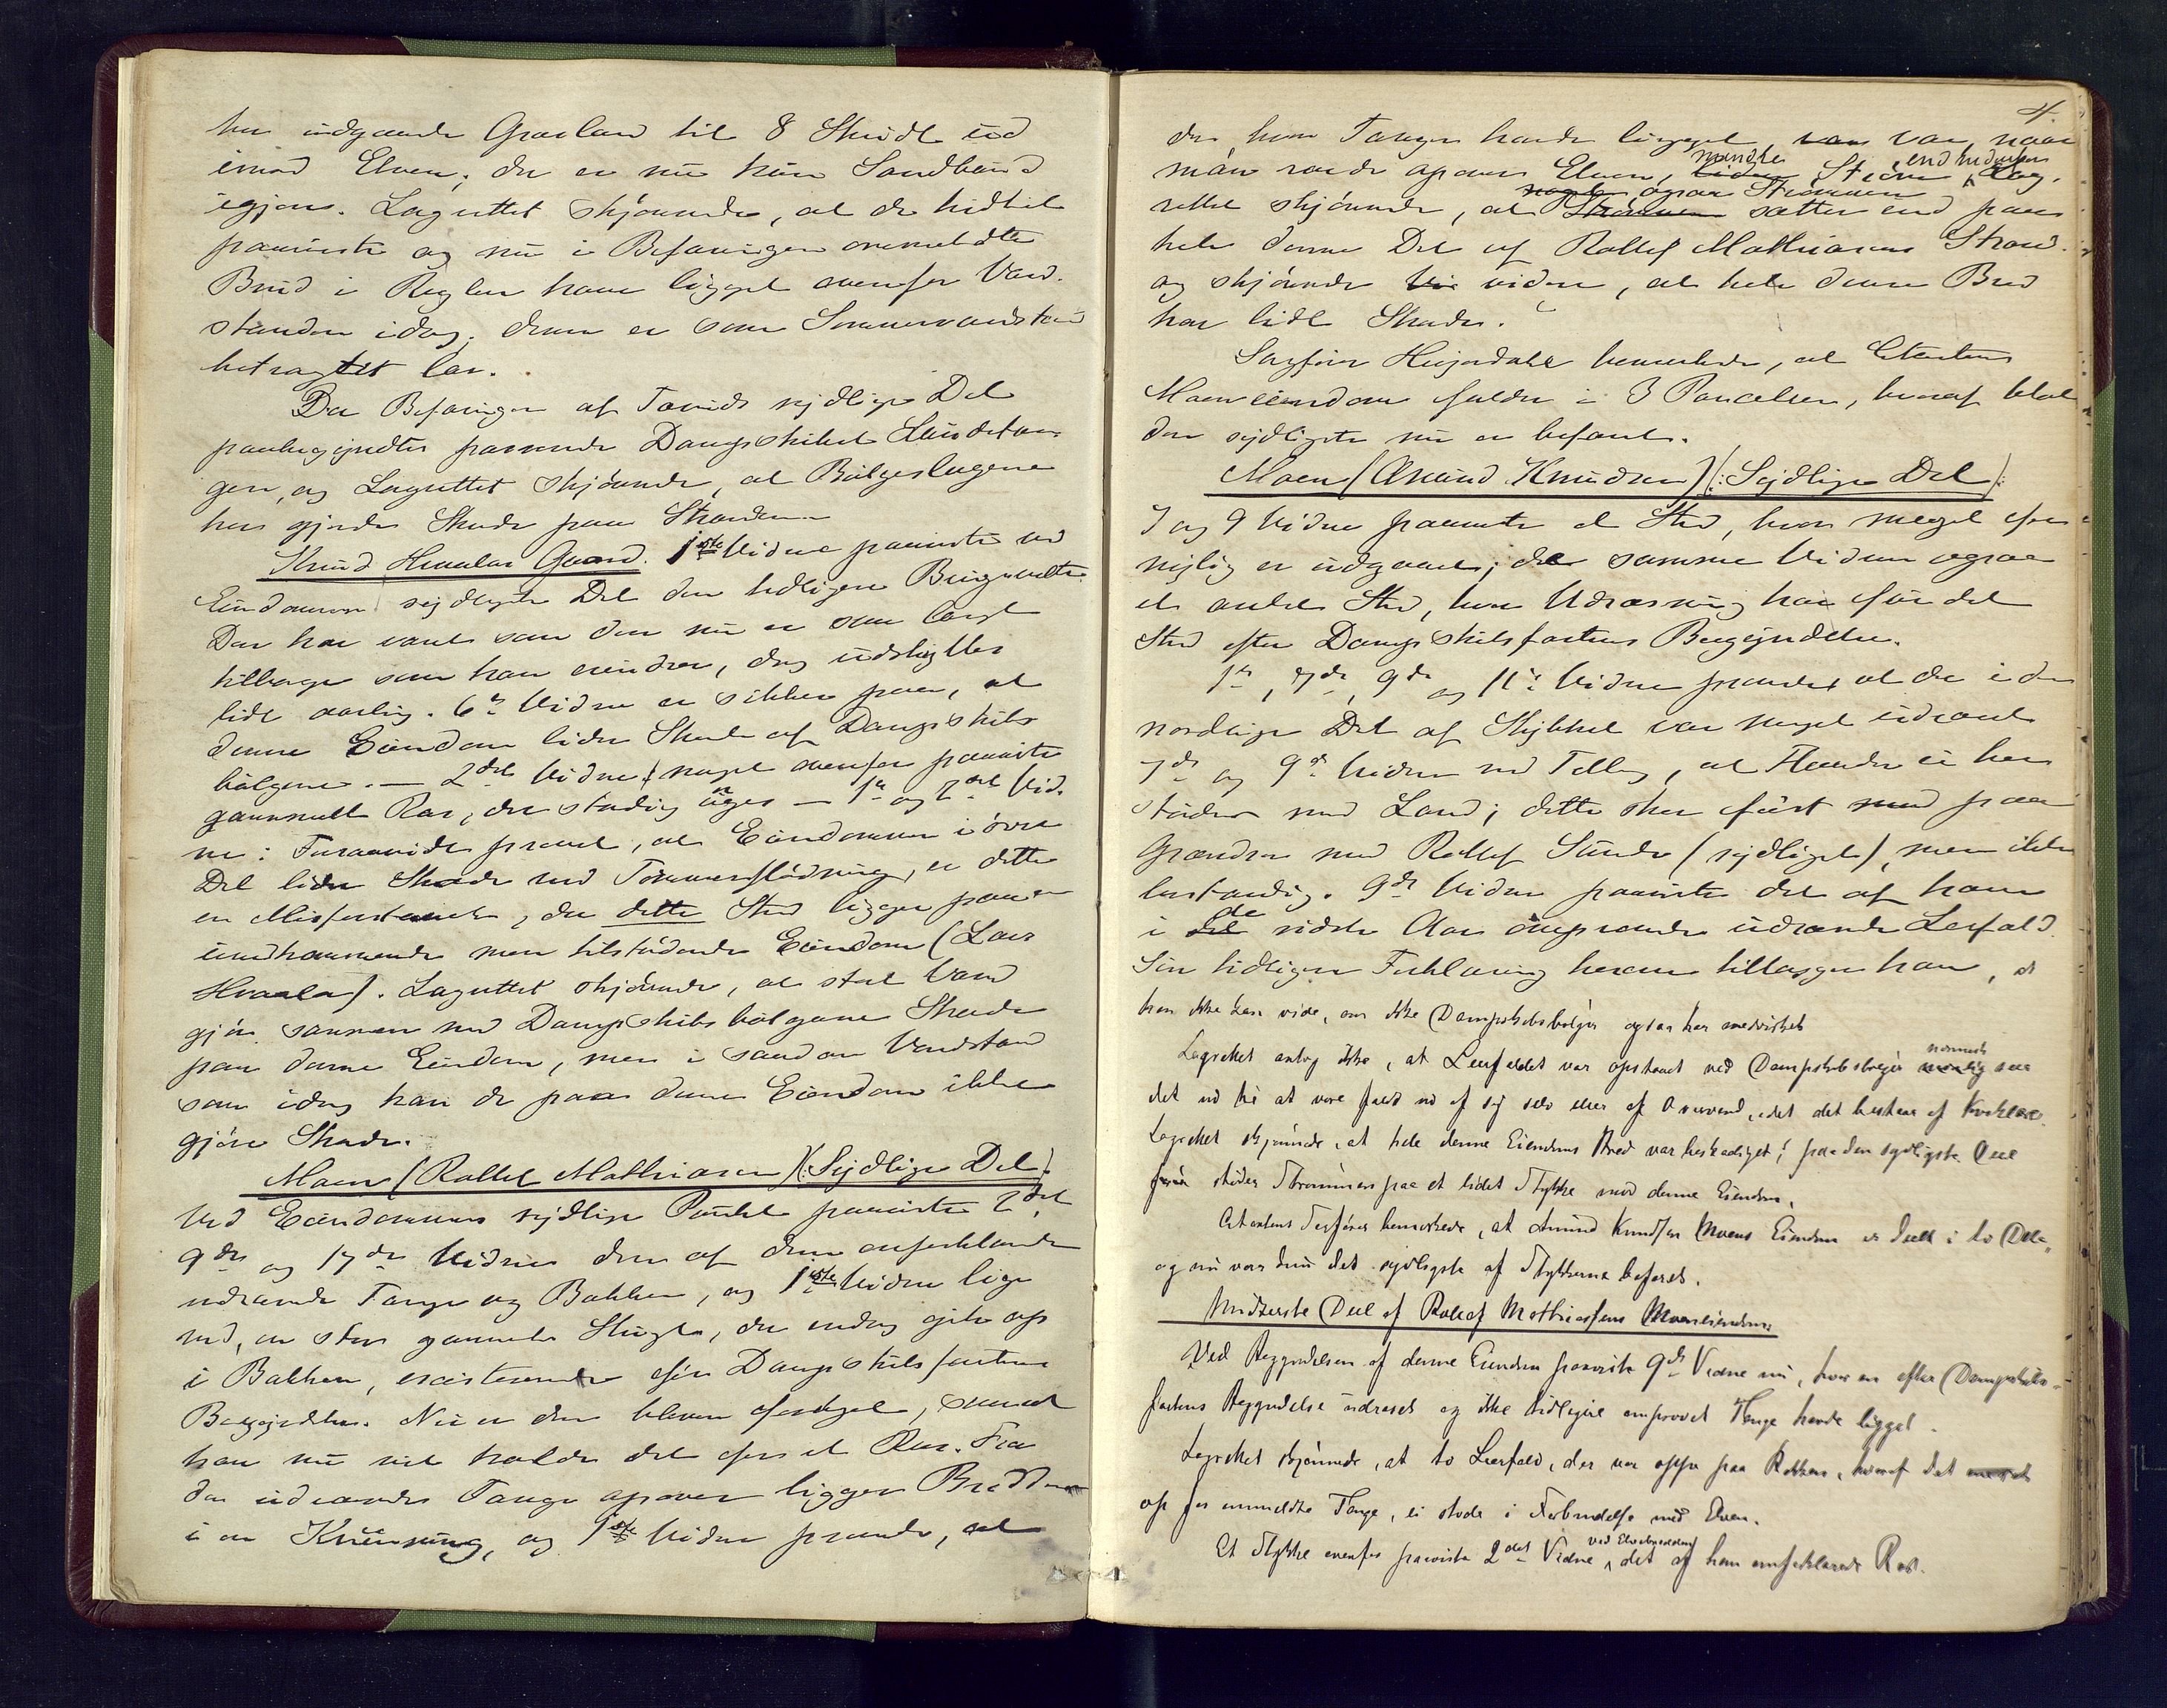 har udgaaende Græsland til 8 Skridt ud
imod Elven; der er nu kun Sandbund
igjen. Lagrettet skjønnede, at de hidtil
paaviste og nu i Befaringen anmeldte
Brud i Reglen have ligget ovenfor Vand-
standen idag, denne er som Sommervandstand
betragtet lav.
Da Befaringen af Tomids sydlige Del
paabegyndtes passerede Dampskibet Lundetan-
gen, og Lagrettet skjønnede, at Bølgeslagene
her gjorde Skade paa Stranden.
Knud Hvaalas Gaard. 1ste Vidne paaviste ved
Eiendommens sydligste Del den tidligere
Den har været som den nu er saa langt
tilbage som han mindes, dog udskylles
lidt aarlig. 6te Vidne er sikker paa, at
denne Eiendom lider Skade af Dampskibs
bølgerne. — 2det Vidne noget ovenfor paaviste
gammelt Ras, der stadig øges — 1ste og 2det Vid-
ne: Foranvidt prouet, at Eiendommen i øvre
Del lider Skade ved Tømmerflødning, er dette
en Misforstaaelse, da dette Sted ligger paa
uvedkommende men tilstødende Eiendom (Lars
Hvaala). Lagrettet skjønnede, at stort Vand
gjør sammen med Dampskibsbølgerne Skade
paa denne Eiendom, men i saadan Vandstand
som idag kan de paa denne Eiendom ikke
gjøre Skade.
Moen (Rollef Mathiasen) (: Sydlige Del :)
Ved Eiendommens sydlige Punkt paaviste 2det,
9de og 17de Vidne den af dem omforklarede
udrasede Tange og Bakken, og 1ste Vidne lige
ved, en stor gammel Stygge, der endog gik op
i Bakken, existerende før Dampskibsfartens
Begyndelse. Nu er den bleven forøget, saa at
han nu vil kalde det for et Ras. Fra
den udrasede Tange opover ligger Bredden
i en Krumning, og 1ste Vidne provede, at
4.
der, hvor Tangen havde ligget var naar
man roede opover Elven, liden mindre Strøm, end nedenfor. Lag-
rettet skjønnede, at Strømmen noget ogsaa Strømmen sætter ind paa
hele denne Del af Rollef Mathiasens Strand.
og skjønnede videre, at hele denne Bred
har lidt Skade.
Sagfører Heijerdahl bemærkede, at Citantens
Moeneiendom falder i 3 Parceller, hvoraf blot
den sydligste nu er befaret.
Moen (Amund Knudsen) (: Sydlige Del :)
7 og 9 Vidne paaviste et Sted, hvor meget før
nylig er udgaaet; de samme Vidner ogsaa
et andet Sted, hvor Udrasning har fundet
Sted efter Dampskibsfartens Begyndelse.
1ste, 7de, 9de og 11te Vidne provede at der i den
nordlige Del af Stykket var meget udraset
7de og 9de Vidne med Tillæg, at Flaaden ei her
støder mod Land; dette sker først paa
Grændsen mod Rollef Sunde (sydligst), men ikke
bestandig. 9de Vidne paaviste det af ham
i de sidste Aar omprovede udrasede Leerfald
Sin tidligere Forklaring herom tillægger han, at
han ikke kan vide, om ikke Dampskibsbølger ogsaa har medvirket
Lagrettet antog ikke, at Leerfaldet var opstaaet ved Dampskibsbølger nærmest saa
det ud til at være faldt ud af sig selv eller af Overvand, idet det bestaar af Kvikleer.
Lagrettet skjønnede, at hele denne Eiendoms Bred var beskadiget; paa den sydligste Deel
støder Strømmen paa et lidet Stykke mod denne Eiendom.
Citantens Sagfører bemærkede, at Amund Knudsen Moens Eiendom er deelt i to Dele,
og nu var kun det sydligste af Stykkerne befaret.
Midterste Deel af Rollef Mathiassens Moeneiendom
Ved Begyndelsen af denne Eiendom paaviste 9de Vidne nu, hvor en efter Dampskibs-
fartens Begyndelse udraset og ikke tidligere omprovet Tange havde ligget.
Lagrettet skjønnede, at to Leerfald, der var oppe paa Bakken, hvoraf det
op for anmeldte Tange, ei stode i Forbindelse med Elven.
Et Stykke ovenfor paaviste 2det Vidne ved Elvebredden det af ham omforklarede Ras.